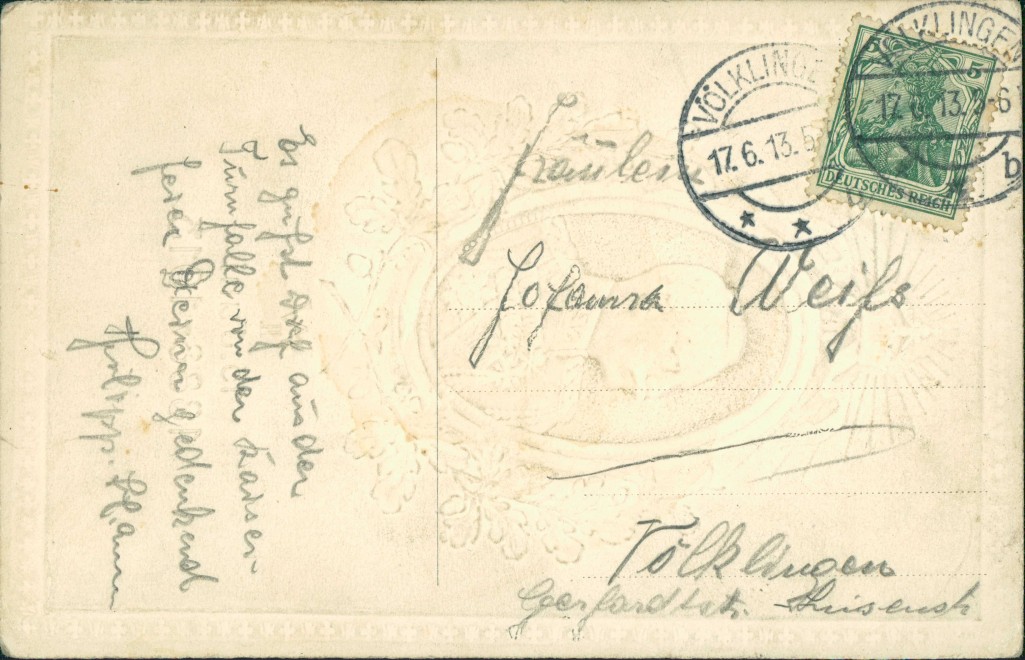 Es grüßt Dich aus der
Turnhalle von der Kaiser-
feier Deiner gedenkend
Philipp. Hamm
Fräulein
Johanna Weiß
Völklingen
Gerhardtstr. Luisenstr
VÖLKLINGEN
17.6.13.5
VÖLKLINGEN
17.6.13. -6
b
5 5
DEUTSCHES REICH